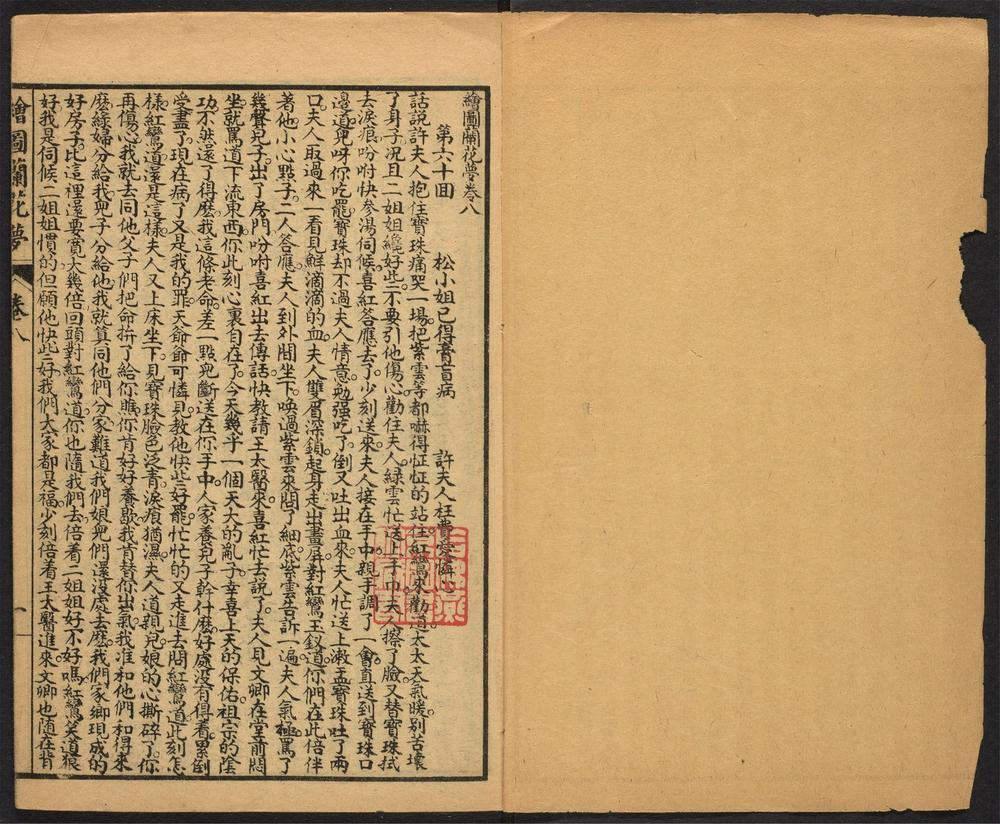 繪圖蘭花夢卷八
第六十回　松小姐已得膏肓病　許夫人枉費愛憐心
話說許夫人抱住寶珠痛哭一場把紫雲等都嚇得怔怔的站住紅鸞來勸道太太天氣暖別苦壞
了身子況且二姐姐纔好些不要引他傷心勸住夫人綠雲忙送上手巾夫人擦了臉又替寶珠拭
去淚痕吩咐快參湯伺候喜紅答應去了少刻送來夫人接在手中親手調了一會直送到寶珠口
邊道兒呀你吃罷寶珠却不過夫人情意勉强吃了倒又吐出血來夫人忙送上漱盂寶珠吐了兩
口夫人取過來一看見鮮滴滴的血夫人雙眉深鎖起身走出畫屏對紅鸞玉釵道你們在此倍伴
著他小心點子二人答應夫人到外間坐下喚過紫雲來問了細底紫雲告訴一遍夫人氣極罵了
幾聲兒子出了房門吩咐喜紅出去傳話快教請王太醫來喜紅忙去說了夫人見文卿在堂前悶
坐就罵道下流東西你此刻心裏自在了今天幾乎一個天大的亂子幸喜上天的保佑祖宗的陰
功不然還了得麽我這條老命差一點兒斷送在你手中人家養兒子幹什麽好處沒有得着累倒
受盡了現在病了又是我的罪天爺爺可憐見教他快些好罷忙忙的又走進去問紅鸞道此刻怎
樣紅鸞道還是這樣夫人又上床坐下見寶珠臉色泛青淚痕猶濕夫人道親兒娘的心撕碎了你
再傷心我就去同他父子們把命拚了給你瞧你肯好好養歇我肯替你出氣我准和他們和得來
麽綠婦分給我兒子分給他我就算同他們分家難道我們娘兒們還沒處去麽我們家鄉現成的
好房子比這裡還要寬大幾倍回頭對紅鸞道你也隨我們去倍着二姐姐好不好嗎紅鸞笑道狠
好我是伺候二姐姐慣的但願他快些好我們大家都是福少刻倍着王太醫進來文卿也隨在背
繪圖蘭花夢　卷八　一